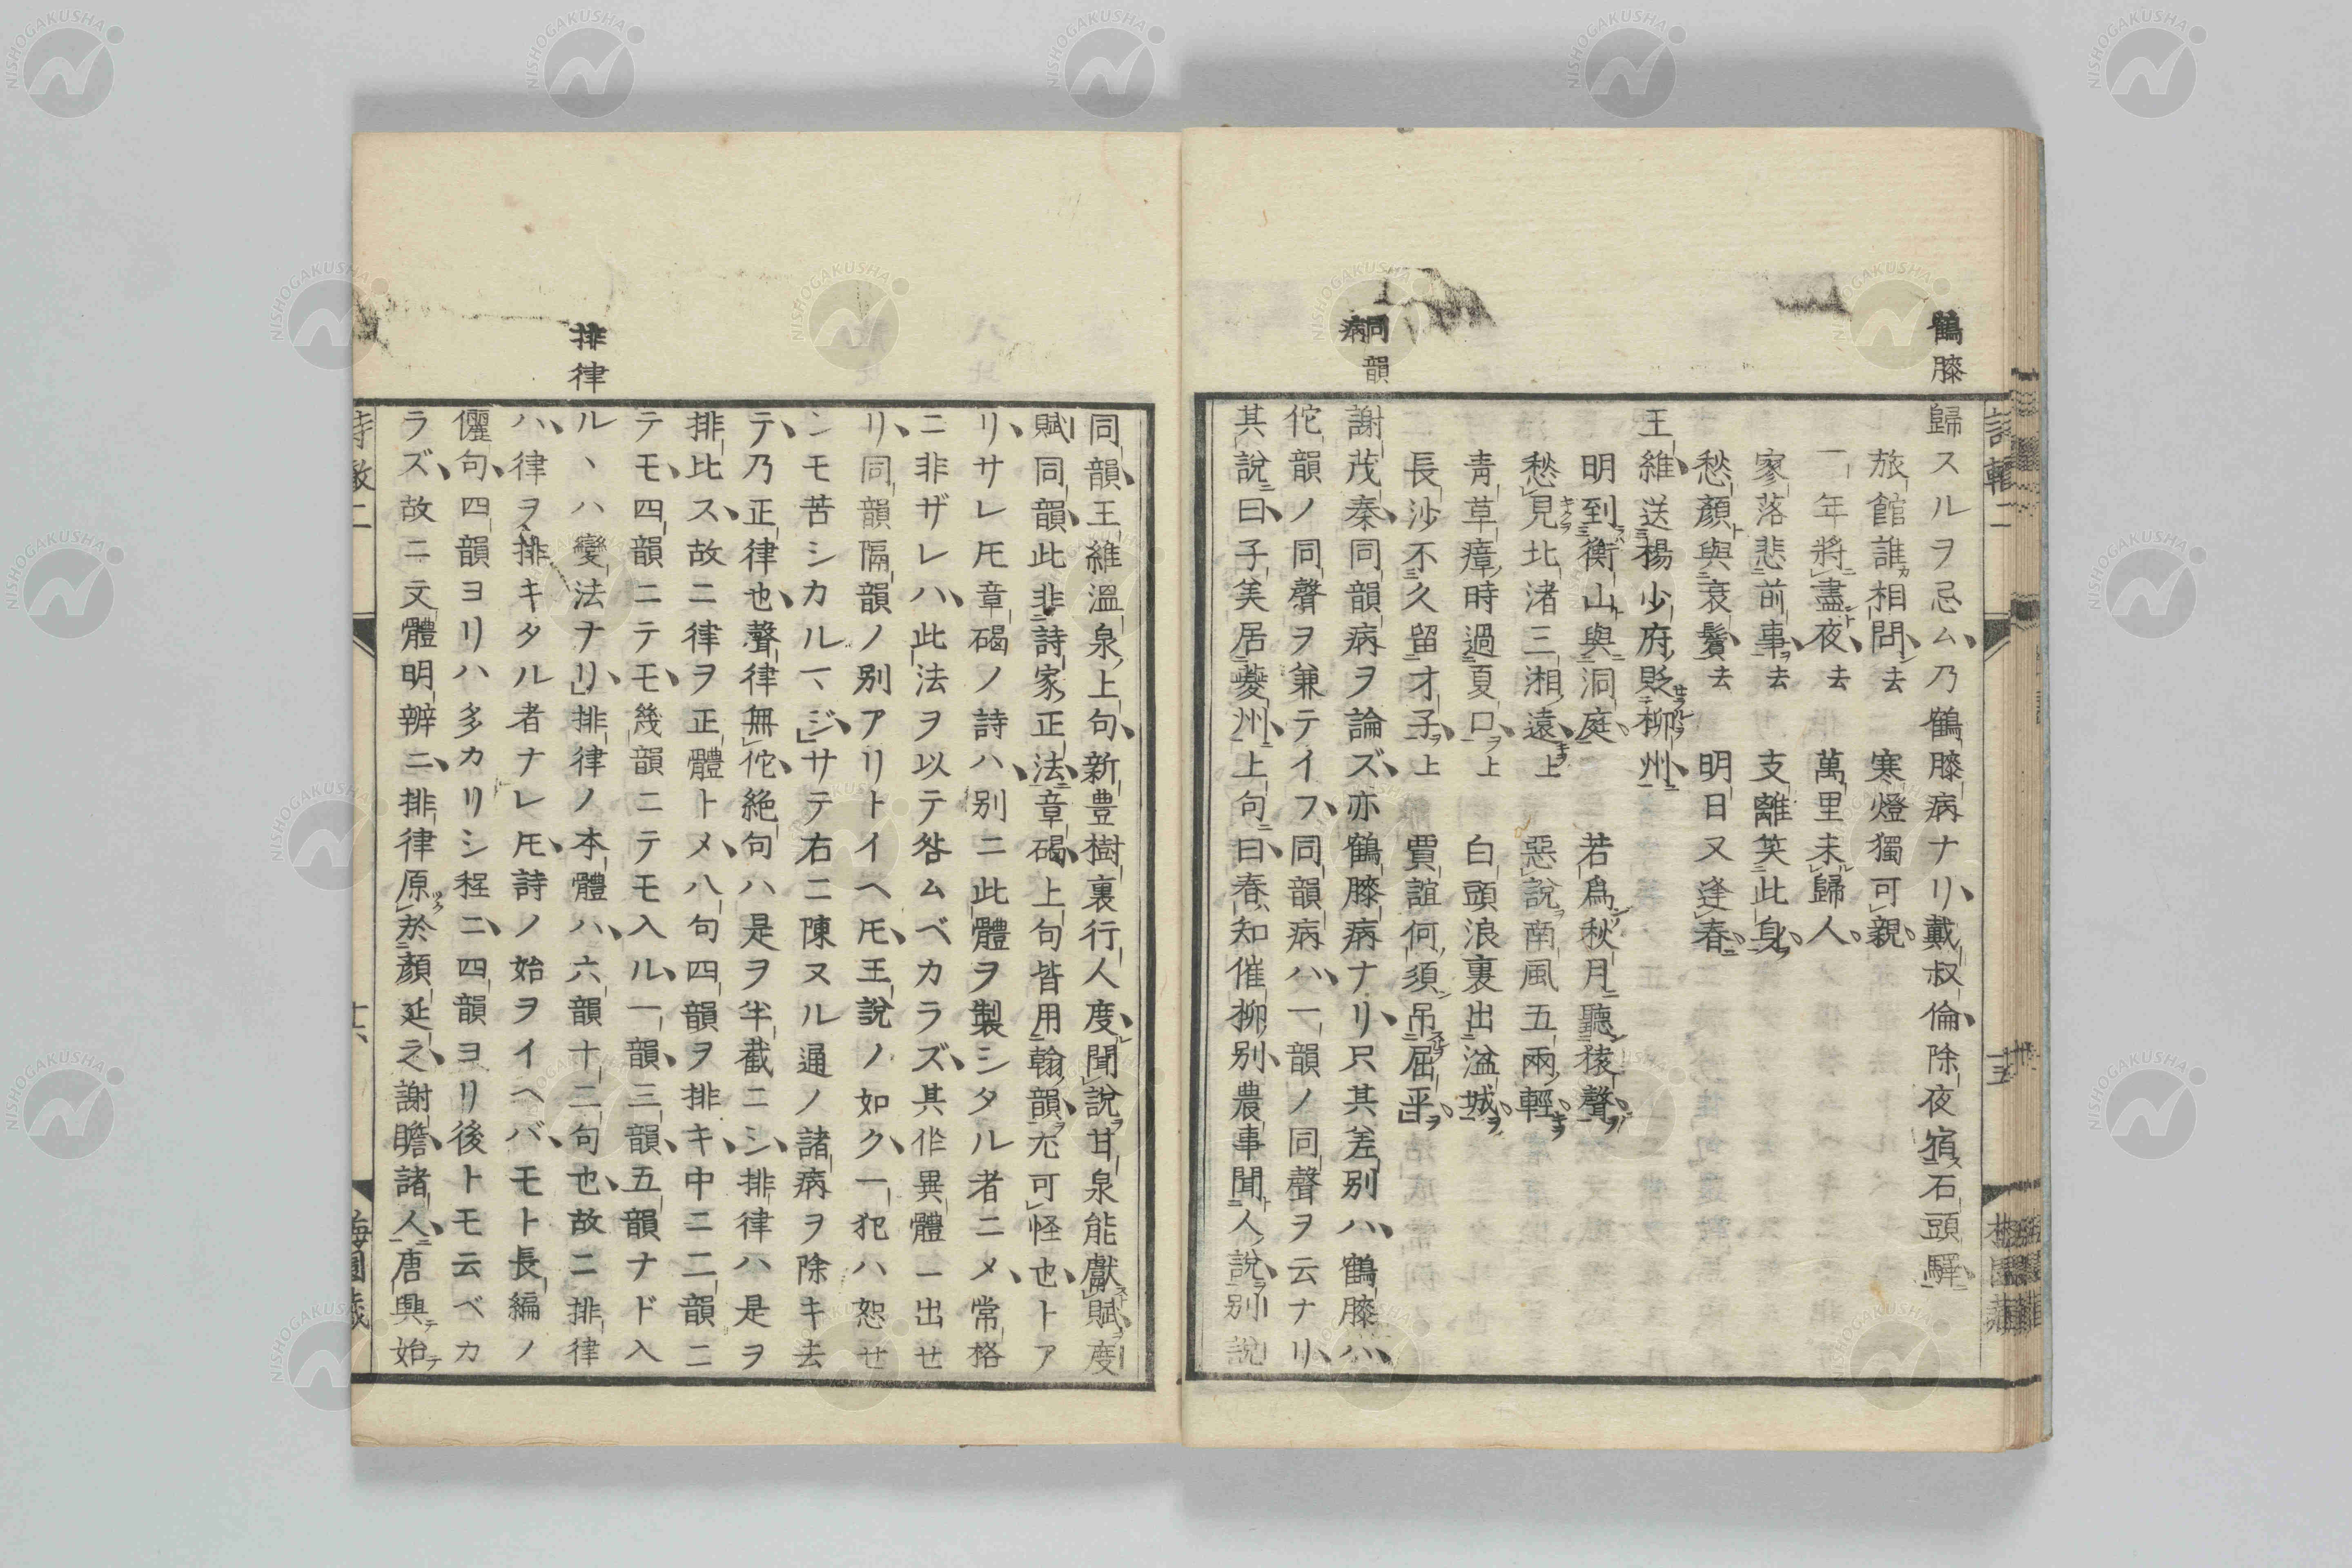 鶴膝
歸スルヲ忌ム乃鶴膝病ナリ戴叔倫除夜宿石頭驛
旅館誰相問去　寒燈獨可親
一年將盡夜去　萬里未歸人
寥落悲前事去　支離笑此身
愁顏與衰鬢去　明日又逢春
王維送楊少府貶柳州
明到衡山與洞庭　若爲秋月聽猿聲
愁見北渚三湘遠上　惡說南風五兩輕
青草瘴時過夏口上　白頭浪裏出湓城
長沙不久留才子上　賈誼何須吊屈平
同韻病
謝茂秦同韻病ヲ論ズ亦鶴膝病ナリ只其差別ハ鶴膝ハ
佗韻ノ同聲ヲ兼テイフ同韻病ハ一韻ノ同聲ヲ云ナリ
其說曰子美居夔州上句曰春知催柳別農事聞人說別說
同韻王維溫泉上句新豊樹裏行人度聞說甘泉能獻賦度
賦同韻此非詩家正法章碣上句皆用翰韻尤可怪也トア
リサレ𪜈章碣ノ詩ハ別ニ此體ヲ製シタル者ニメ常格
ニ非ザレハ此法ヲ以テ咎ムベカラズ其作異體ー出せ
リ同韻隔韻ノ別アリトイヘ𪜈王說ノ如ク一犯ハ恕せ
ンモ苦シカルマジサテ右ニ陳ヌル通ノ諸病ヲ除キ去
テ乃正律也聲律無佗絶句ハ是ヲ半截ニシ排律ハ是ヲ
排比ス故ニ律ヲ正體トメ八句四韻ヲ排キ中ニ二韻ニ
テモ四韻ニテモ幾韻ニテモ入ル一韻三韻五韻ナド入
排律
ルヽハ變法ナリ排律ノ本體ハ六韻十二句也故ニ排律
ハ律ヲ排キタル者ナレ𪜈詩ノ始ヲイヘバモト長編ノ
儷句四韻ヨリハ多カリシ程ニ四韻ヨリ後トモ云ベカ
ラズ故ニ文體明辨ニ排律原於顏延之謝瞻諸人唐興始
詩轍二
梅園藏